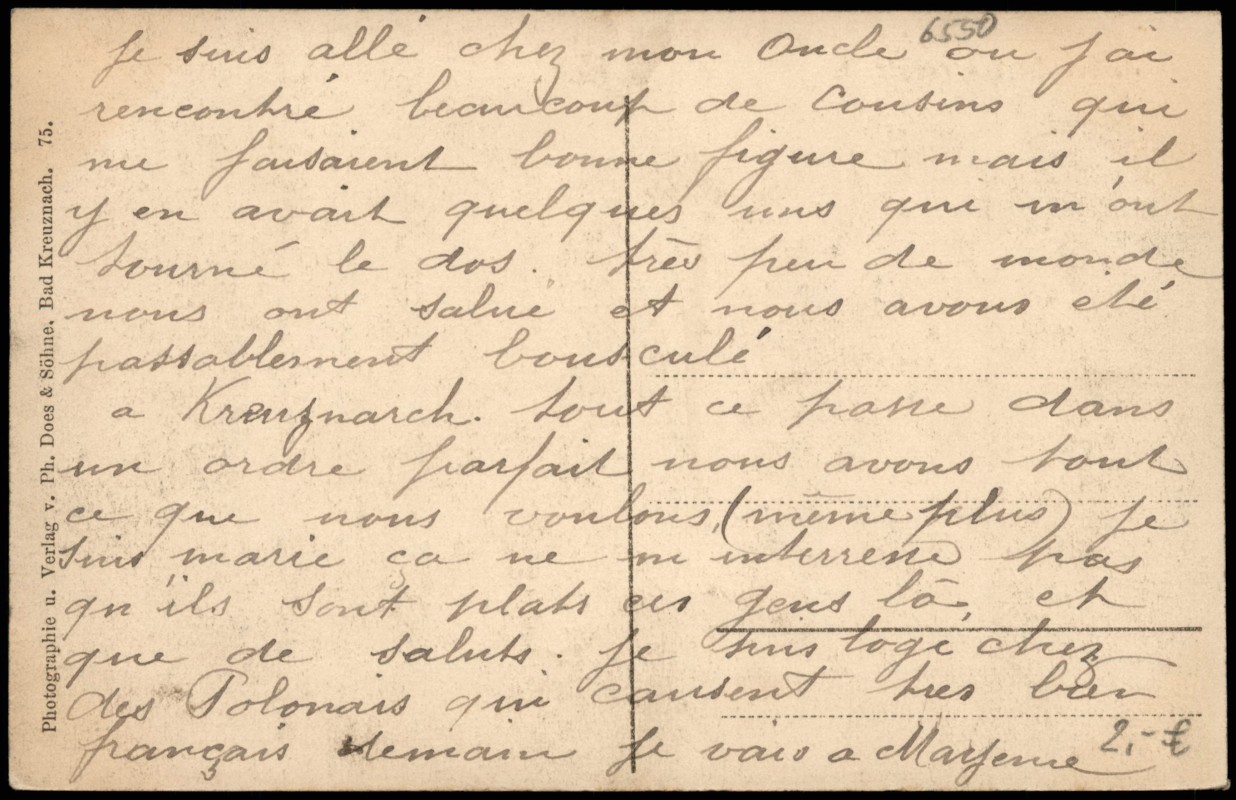 6550
Je suis allé chez mon Oncle ou j'ai
rencontré beaucoup de Cousins qui
me faisaient bonne figure mais il
y en avait quelques uns qui m'ont
tourné le dos. très peu de monde
nous ont salué et nous avons été
passablement bousculé
a Kreuznarch. tout ce passe dans
un ordre parfait nous avons tout
ce que nous voulons, (même plus) je
suis marie ça ne m interresse pas
qu'ils sont plats ces gens là, et
que de saluts. je suis logé chez
des Polonais qui causent tres bien
français demain je vais a
2,- €
Photographie u. Verlag v. Ph. Does & Söhne. Bad Kreuznach. 75.